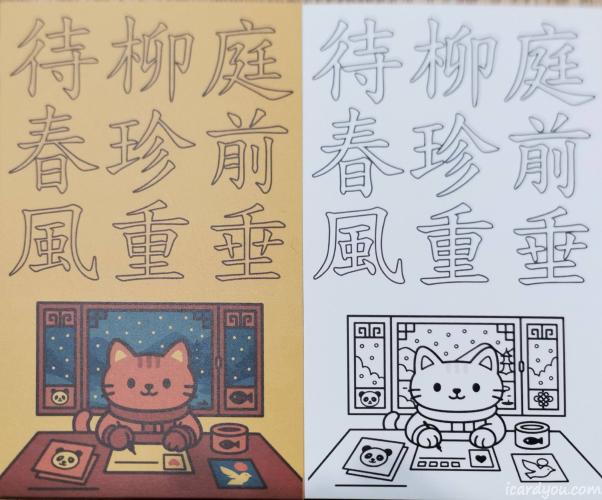 庭前垂
柳珍重
待春風
庭前垂
柳珍重
待春風
icardyou.com